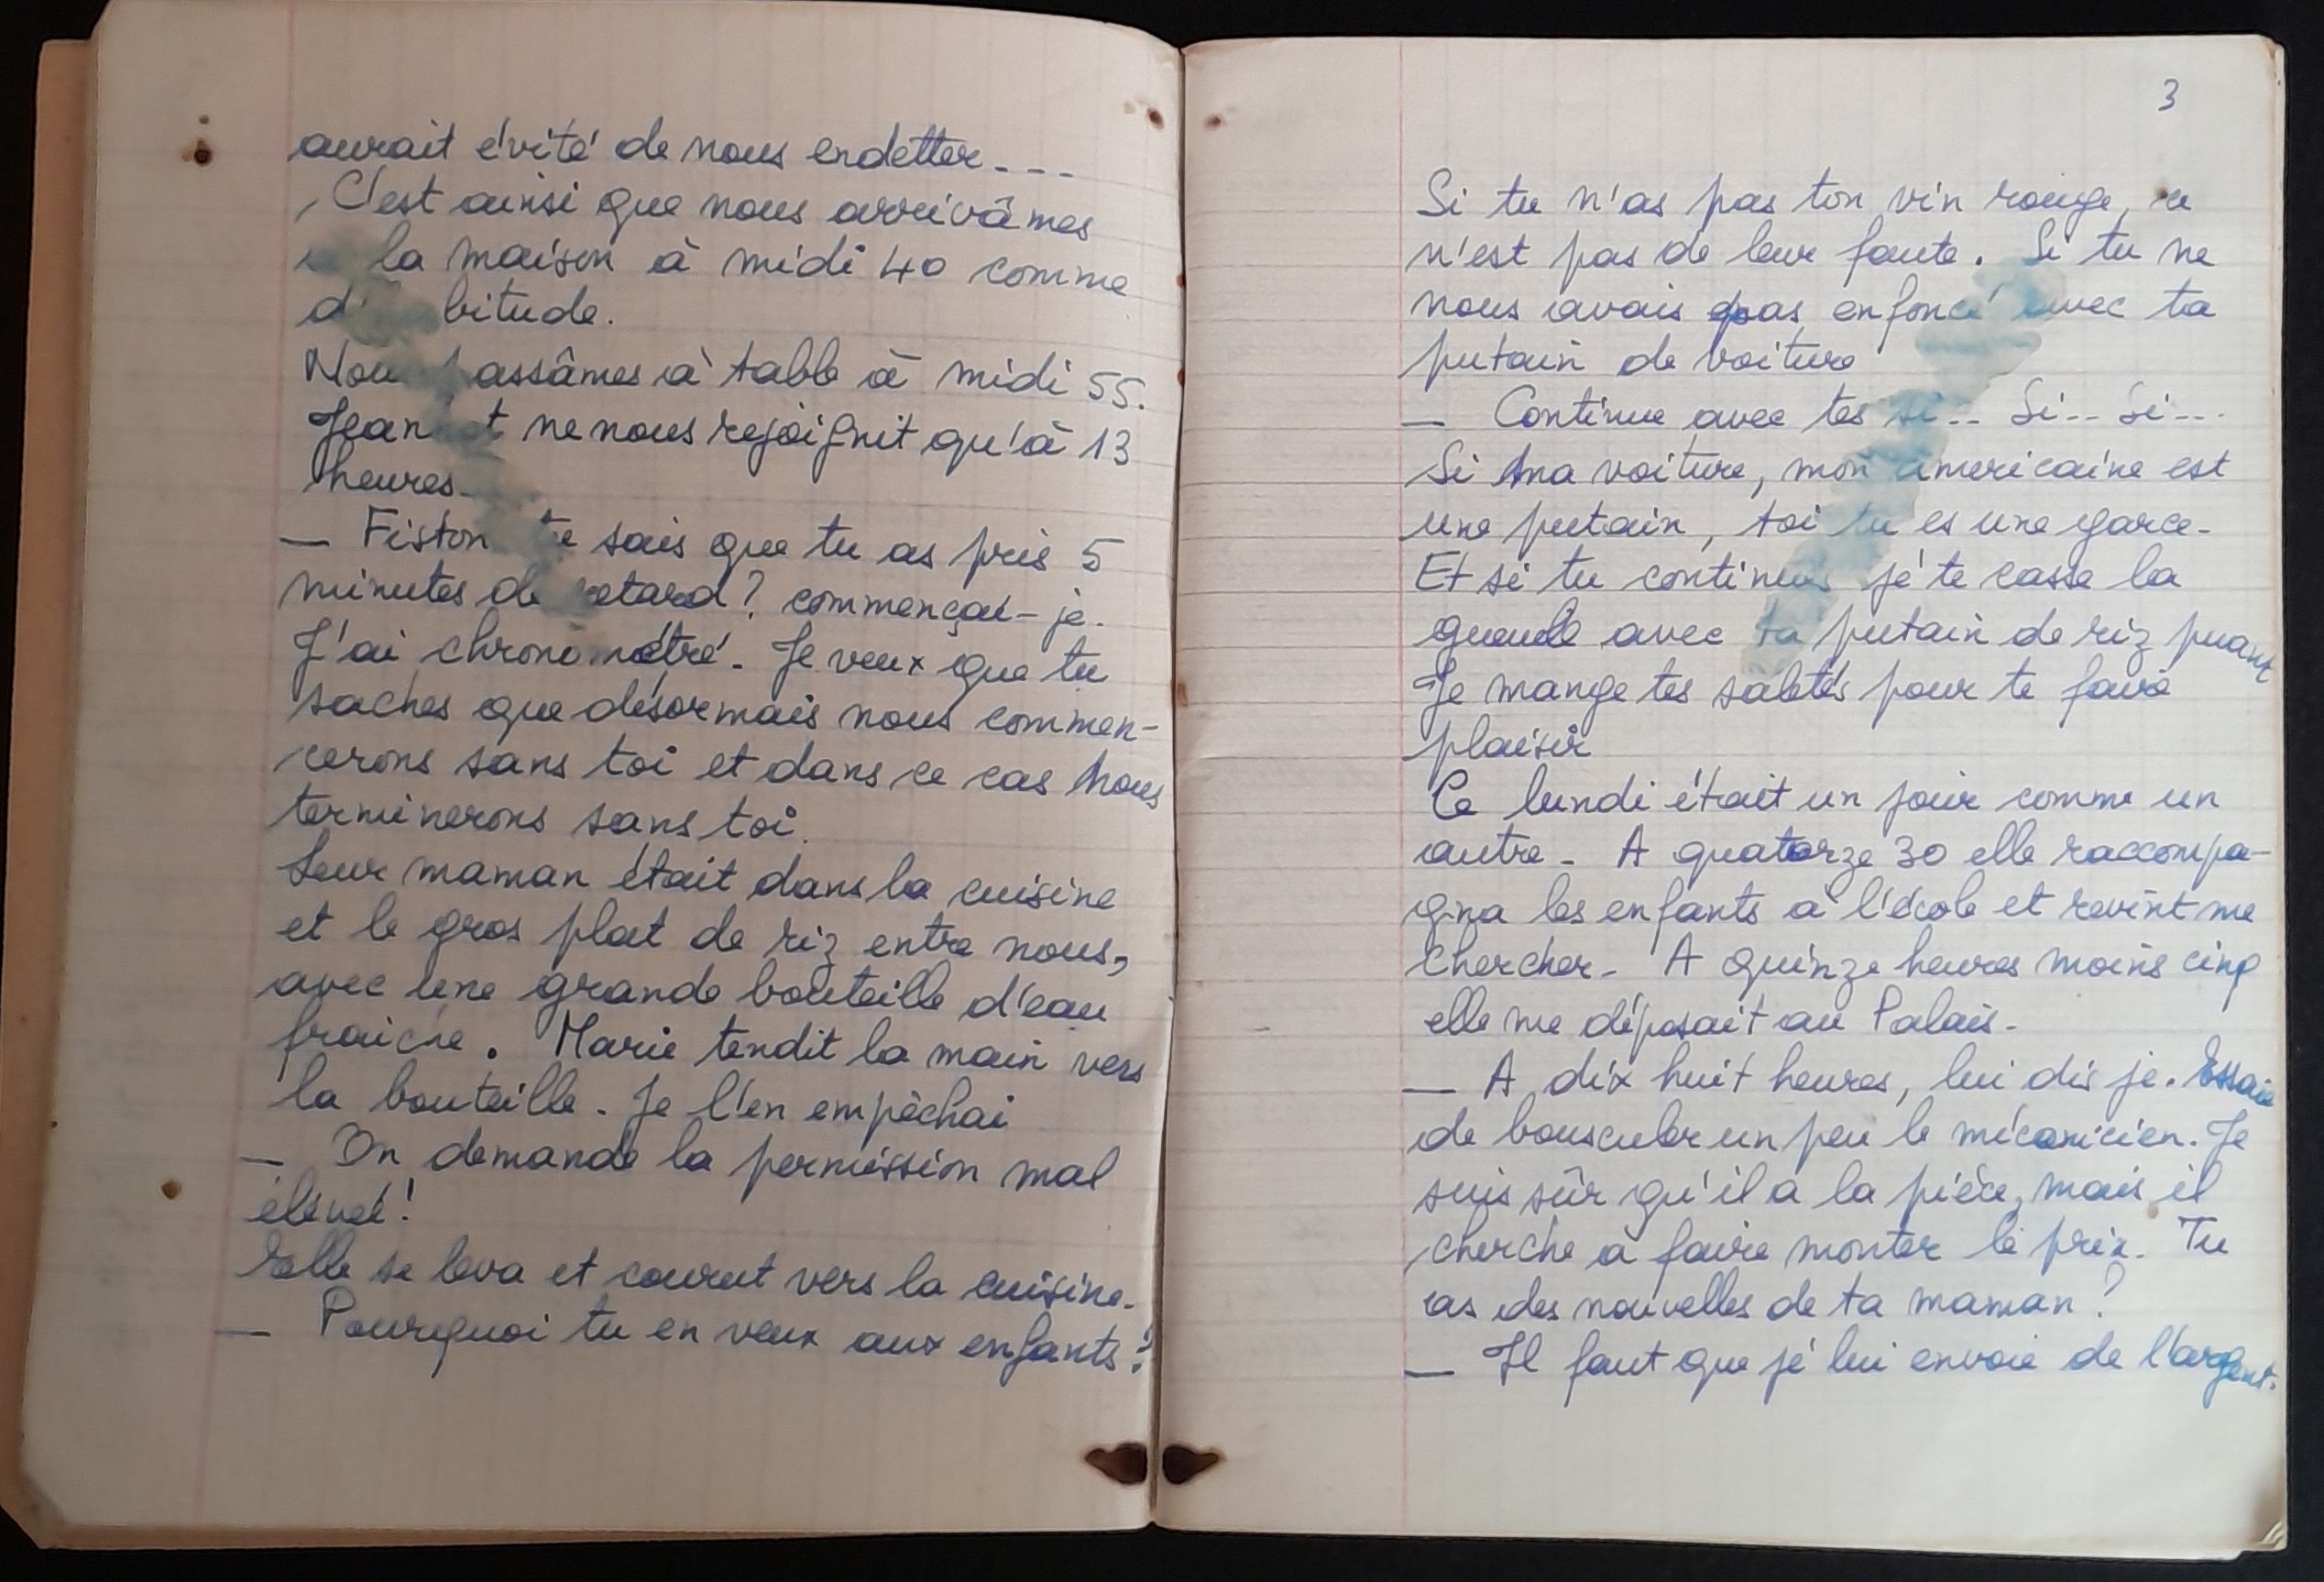 aurait évité de nous endetter...
C'est ainsi que nous arrivâmes
la maison à midi 40 comme
d' bitude.
Nou passâmes à table à midi 55.
Jean t ne nous rejoignit qu'à 13
heures.
— Fiston te sais que tu as pris 5
minutes de retard ? commençai-je.
J'ai chronométré. Je veux que tu
saches que désormais nous commen-
cerons sans toi et dans ce cas nous
terminerons sans toi.
Leur maman était dans la cuisine
et le gros plat de riz entre nous,
avec une grande bouteille d'eau
fraiche. Marie tendit la main vers
la bouteille. Je l'en empêchai
— On demande la permission mal
élevée !
Elle se leva et courut vers la cuisine.
— Pourquoi tu en veux aux enfants ?
3
Si tu n'as pas ton vin rouge, ce
n'est pas de leur faute. Si tu ne
nous avais pas enfoncé avec ta
putain de voiture
— Continue avec tes si.. Si.. Si...
Si ma voiture, mon americaine est
une putain, toi tu es une garce.
Et si tu continues je te casse la
gueule avec ta putain de riz puant
Je mange tes saletés pour te faire
plaisir
Ce lundi était un jour comme un
autre. A quatorze 30 elle raccompa-
gna les enfants à l'école et revint me
chercher. A quinze heures moins cinq
elle me déposait au Palais.
— A dix huit heures, lui dis je. Essaie
de bousculer un peu le mécanicien. Je
suis sûr qu'il a la pièce, mais il
cherche à faire monter le prix. Tu
as des nouvelles de ta maman ?
— Il faut que je lui envoie de l'argent.